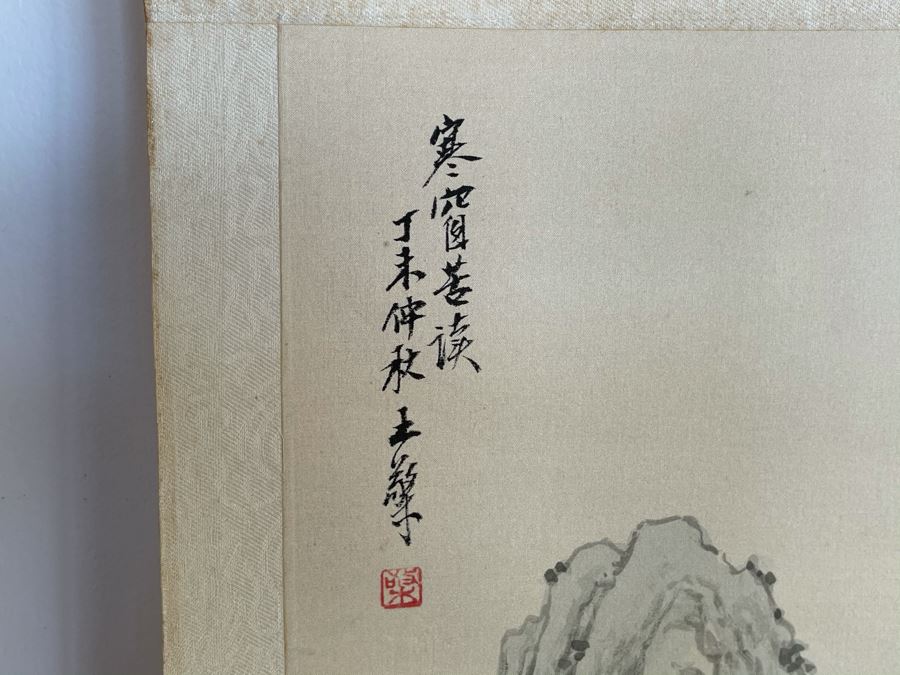 寒窗苦读
丁未仲秋 王